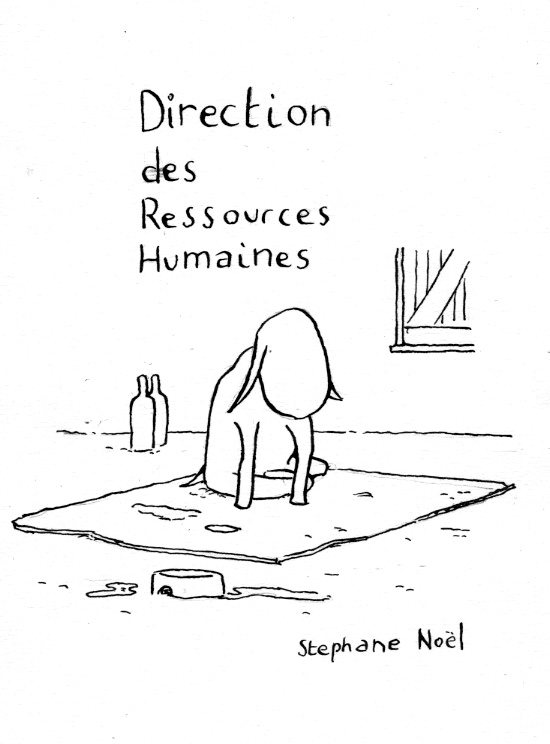 Direction
des
Ressources
Humaines
Stephane Noël